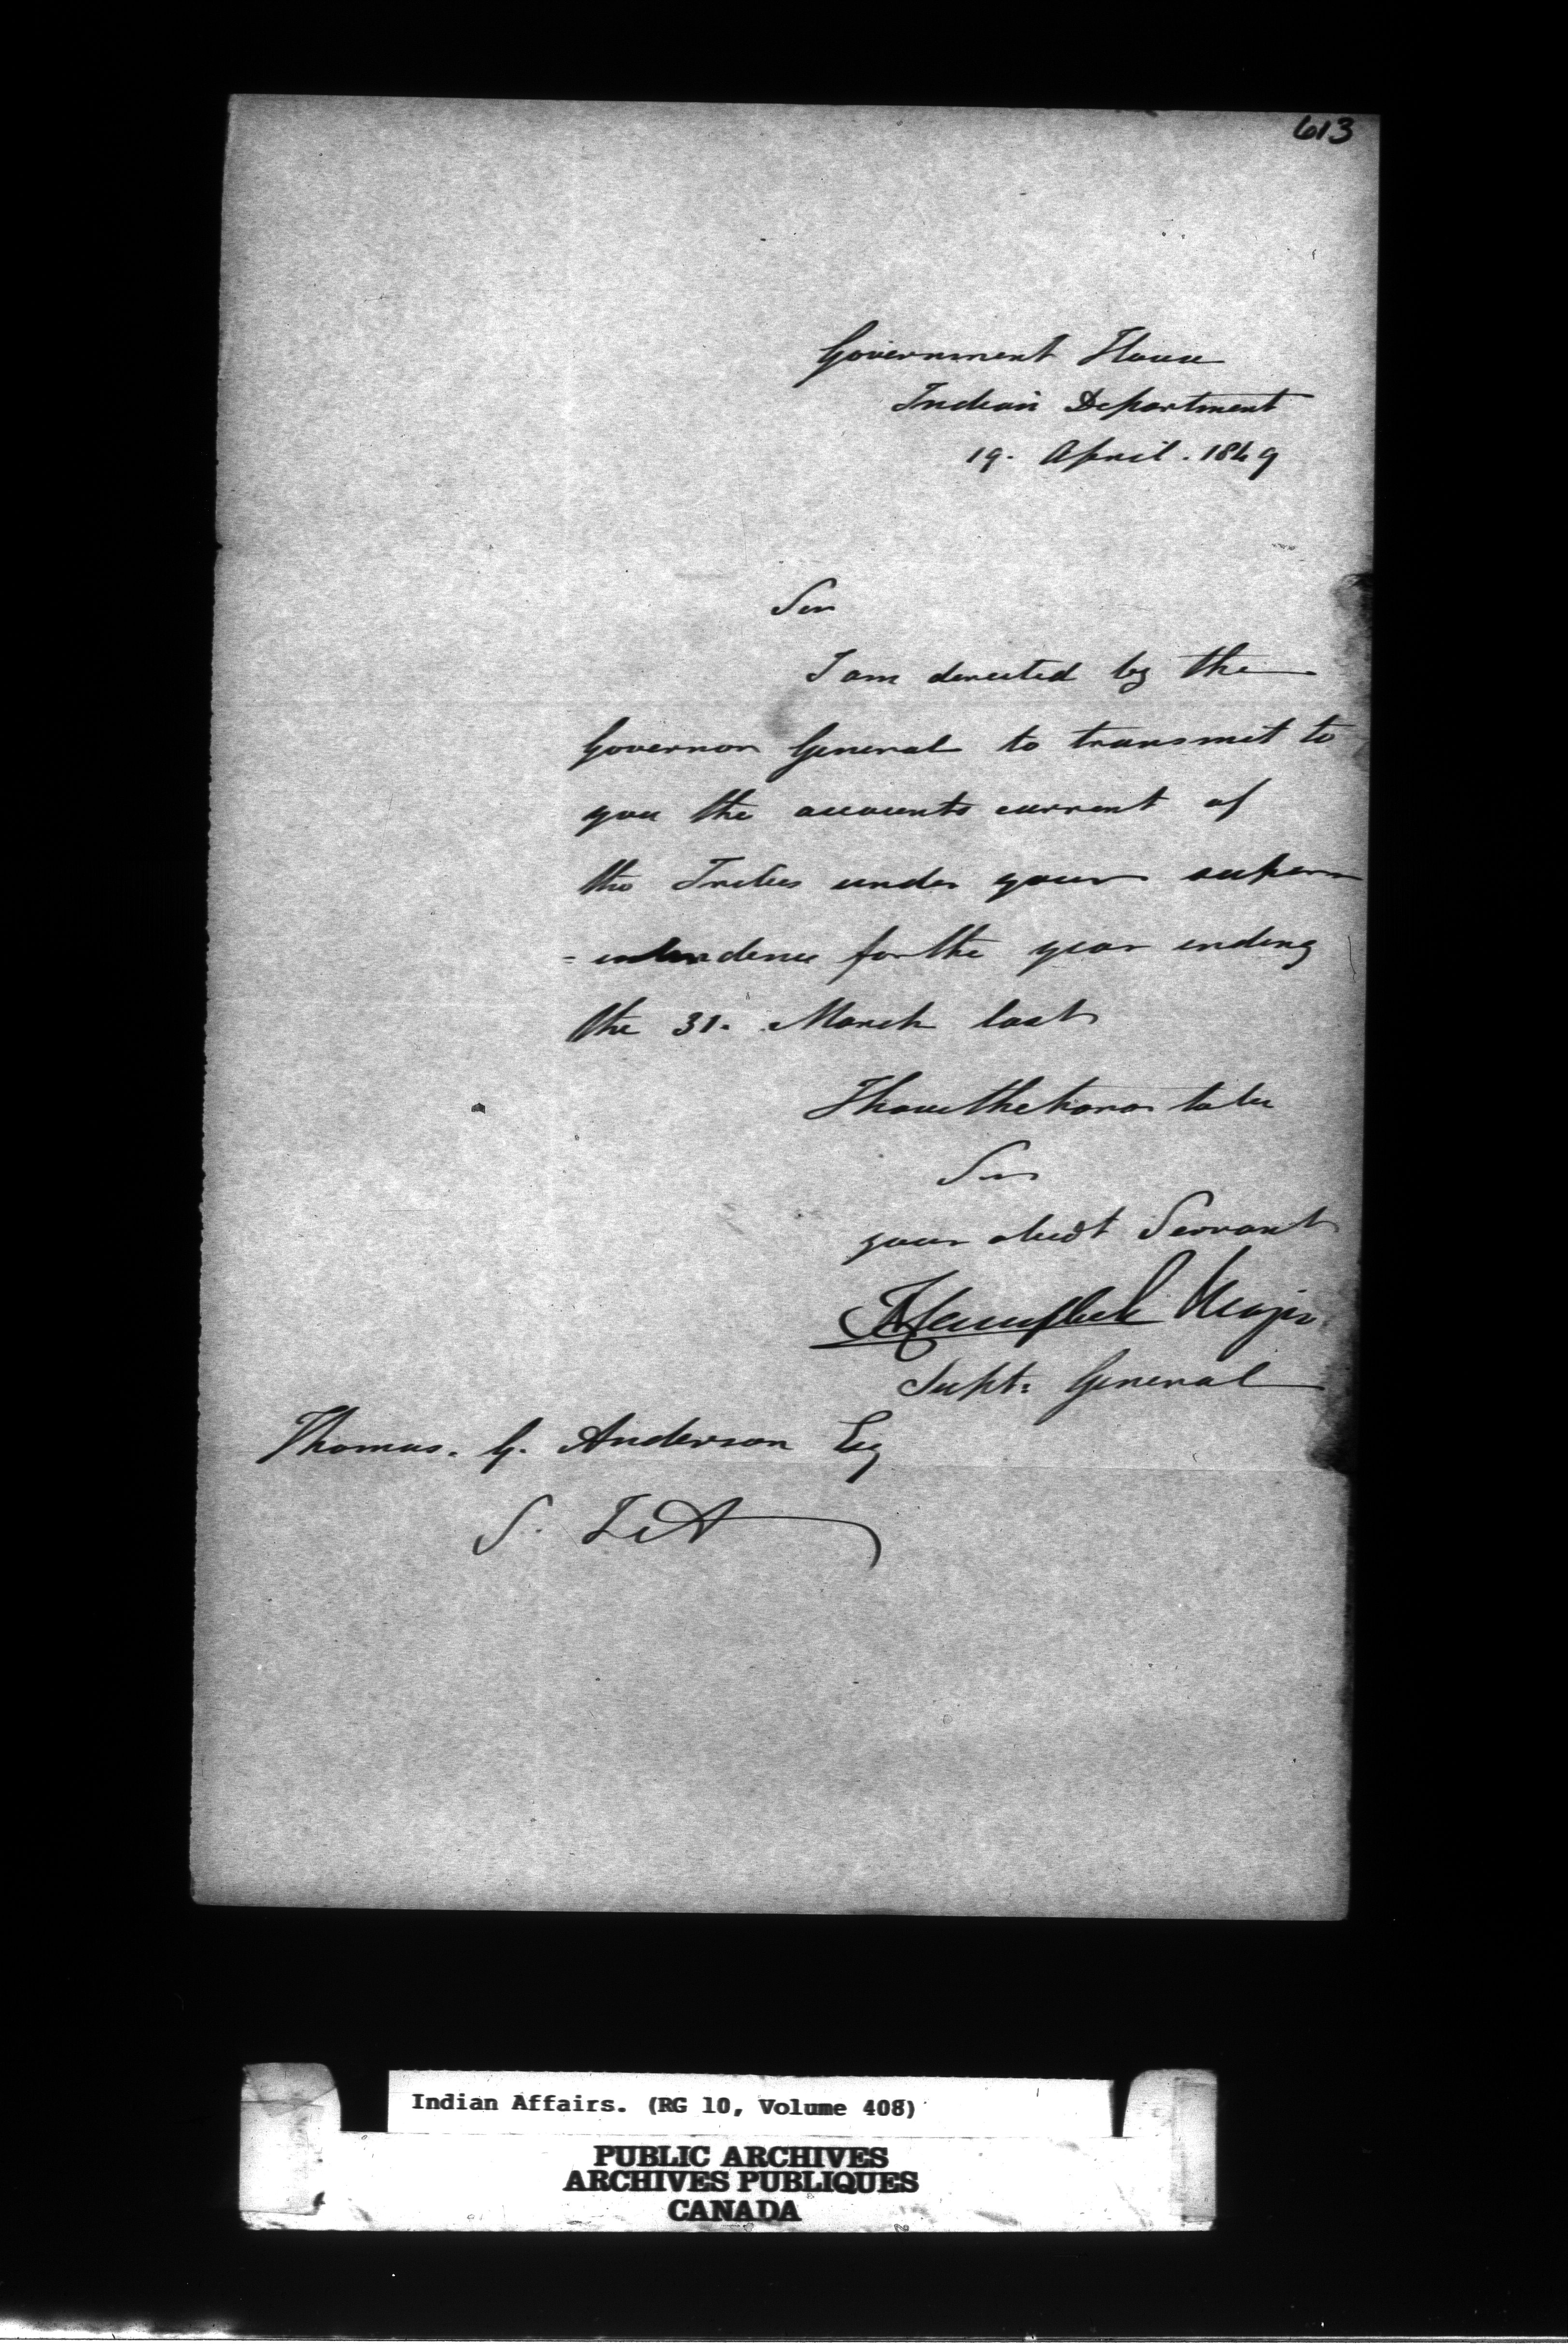 613
Government House
Indian Department
19. April. 1849
Sir
I am directed by the
Governor General to transmit to
you the accounts current of
the Tribes under your super
=intendence for the year ending
the 31. March last
I have the honor to be
Sir
your obedt Servant
T Campbell Major
Supt: General
Thomas. G. Anderson Esq
S. I A
Indian Affairs. (RG 10, Volume 408)
PUBLIC ARCHIVES
ARCHIVES PUBLIQUES
CANADA